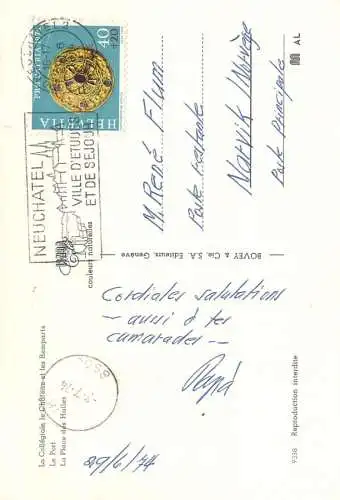 PRO PATRIA 1973
40
+20
HELVETIA
NEUCHATEL
VILLE D'ETUDES
ET DE SEJOUR
couleurs naturelles
M. René Flum
Poste restante
Narvik (Norvège)
Poste principale
AL
BOVEY & Cie, S.A. Editeurs, Genève
Cordiales salutations
– aussi à tes
camarades –
Papa
29/6/74
La Collégiale, le Château et les Remparts
Le Port
La Place des Halles
9338 Reproduction interdite